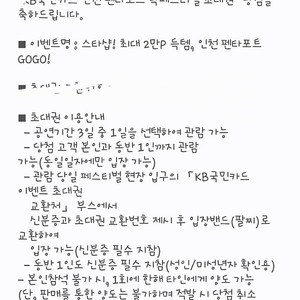 축하드립니다.
■ 이벤트명 : 스타샵! 최대 2만P 득템, 인천 펜타포트
GOGO!
■ 초대권 이용안내
- 공연기간 3일 중 1일을 선택하여 관람 가능
- 당첨 고객 본인과 동반 1인까지 관람
가능(동일일자에만 입장 가능)
- 관람 당일 페스티벌 현장 입구의 「KB국민카드
이벤트 초대권
교환처」 부스에서
신분증과 초대권 교환번호 제시 후 입장밴드(팔찌)로
교환하여
입장 가능(신분증 필수 지참)
- 동반 1인도 신분증 필수 지참(성인/미성년자 확인용)
- 본인참석 불가 시, 1회에 한해 타인에게 양도 가능
(단, 판매를 통한 양도는 불가하며 적발 시 당첨 취소